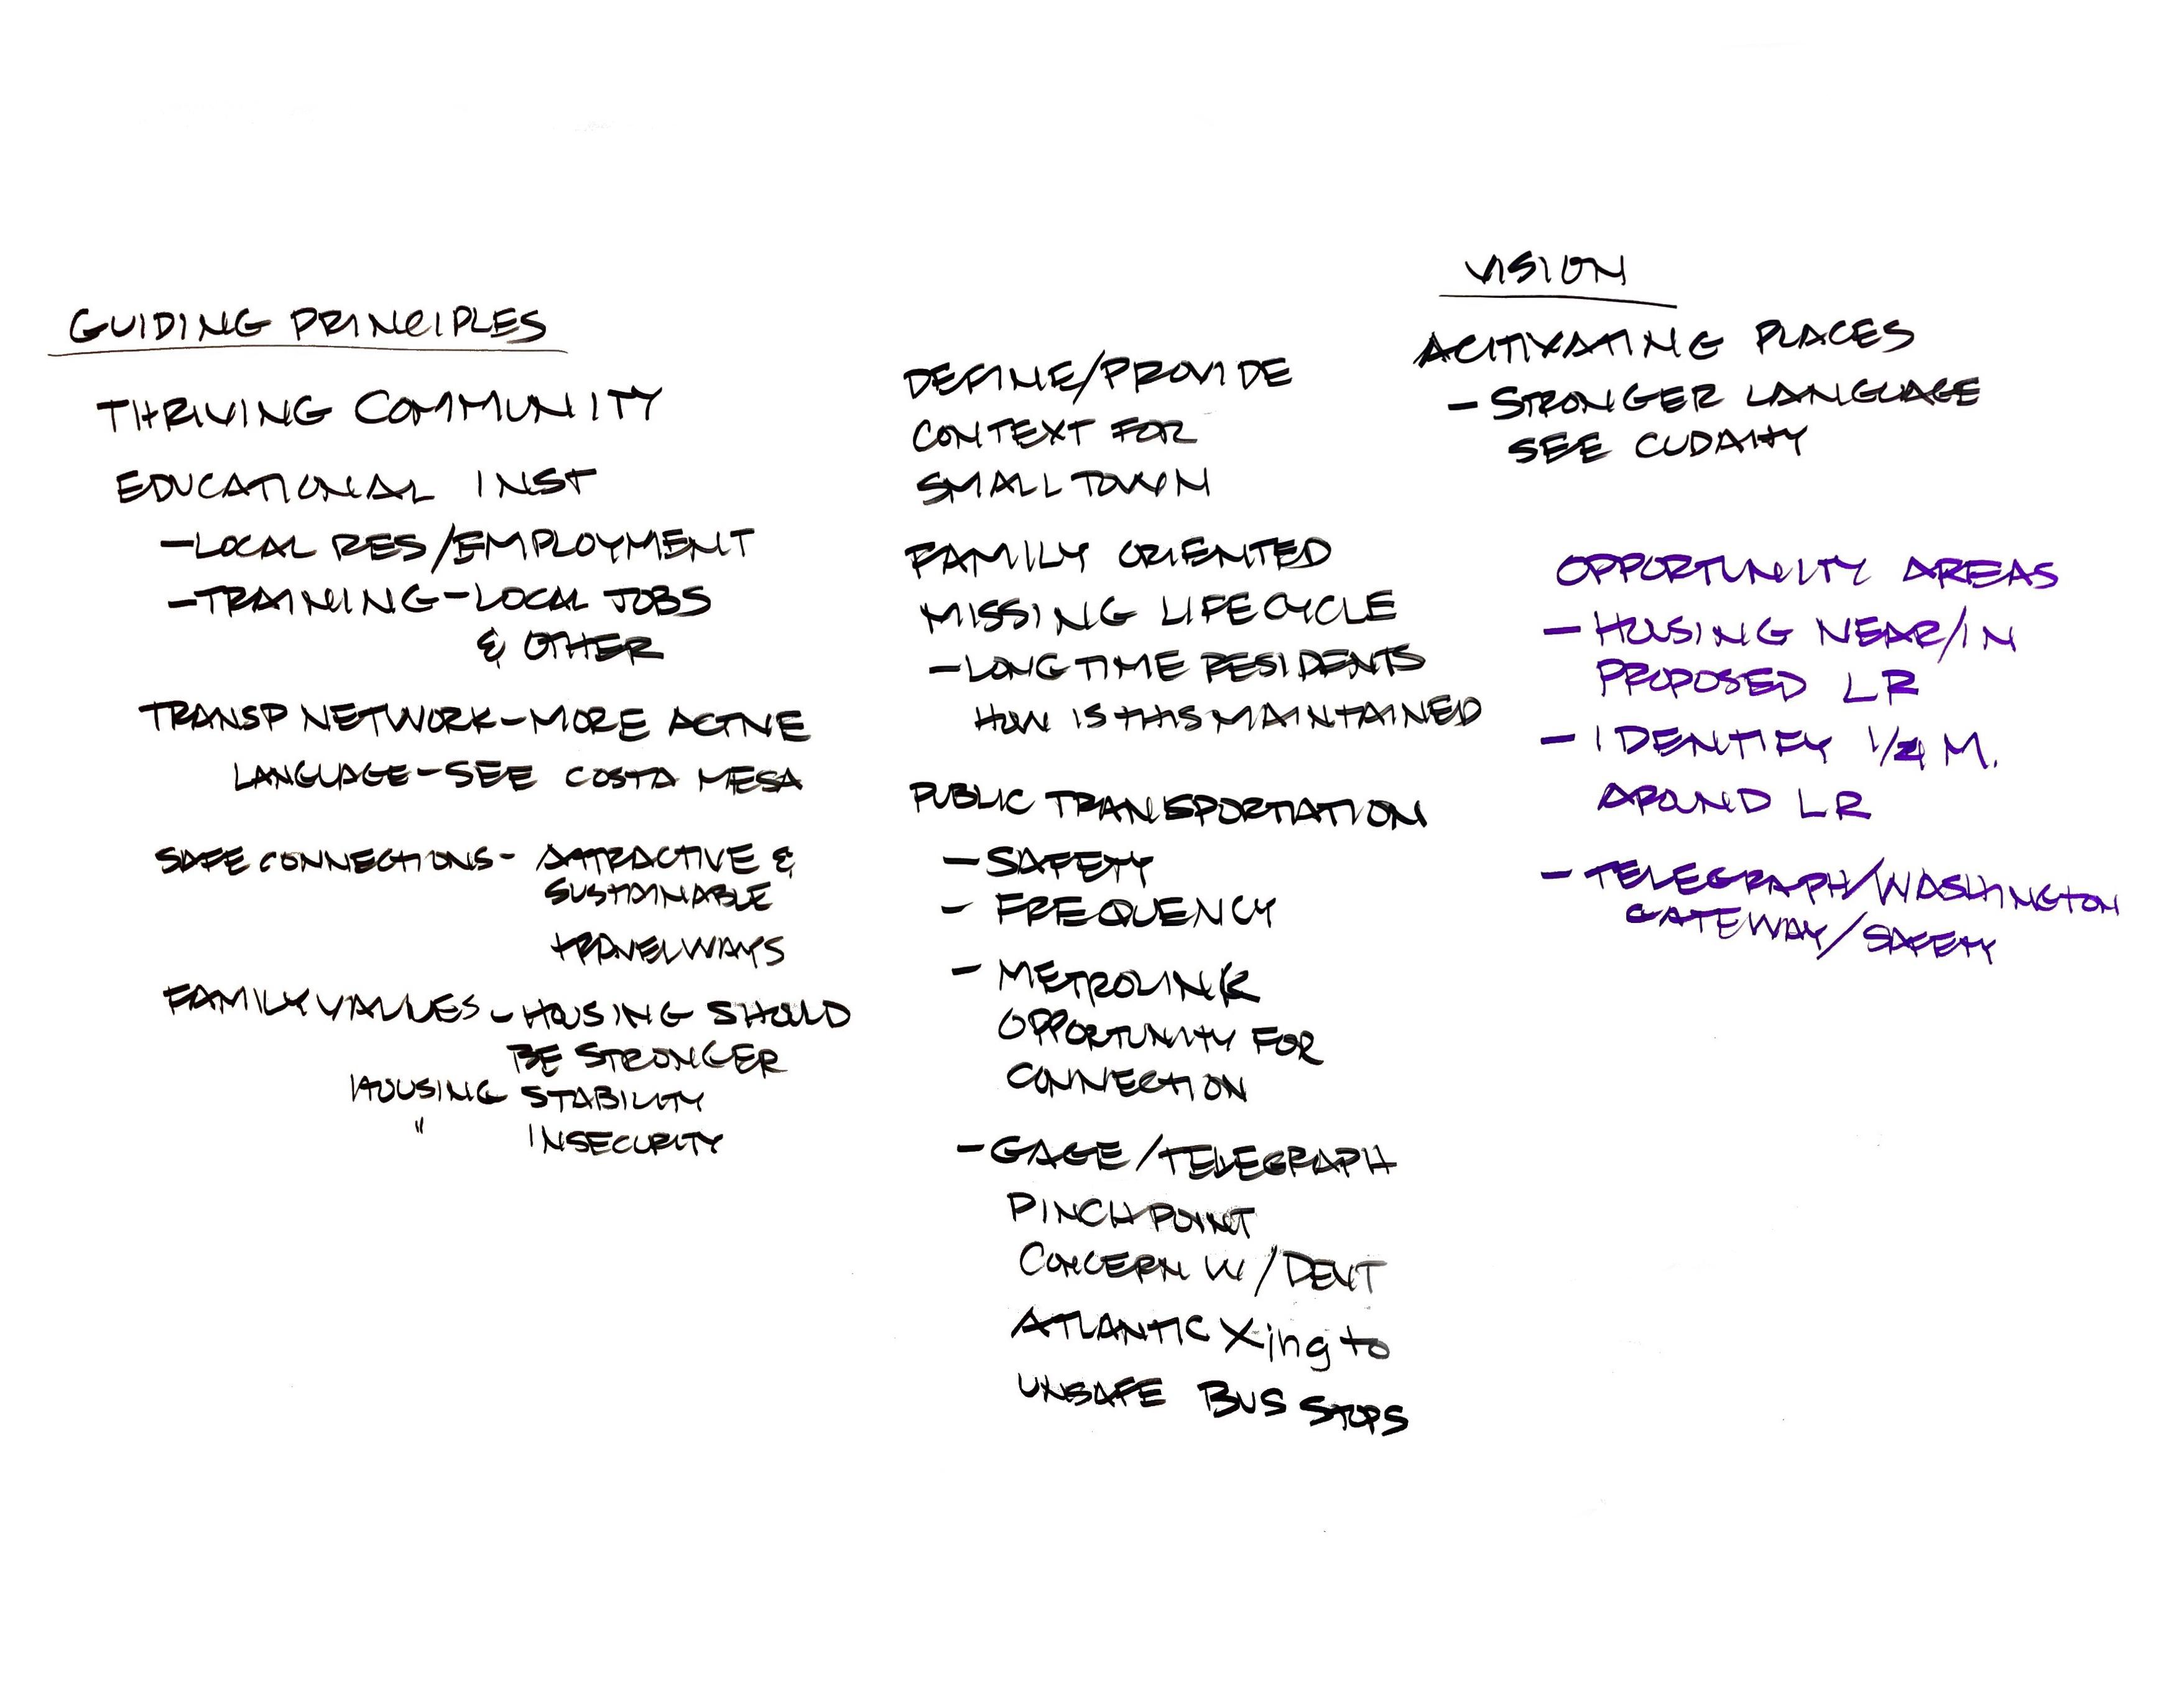 GUIDING PRINCIPLES
THRIVING COMMUNITY
EDUCATIONAL INST
-LOCAL RES/EMPLOYMENT
-TRAINING-LOCAL JOBS
& OTHER
TRANSP NETWORK-MORE ACTIVE
LANGUAGE-SEE COSTA MESA
SAFE CONNECTIONS- ATTRACTIVE &
SUSTAINABLE
TRAVELWAYS
FAMILY VALUES -HOUSING SHOULD
BE STRONGER
HOUSING STABILITY
" INSECURITY
DEFINE/PROVIDE
CONTEXT FOR
SMALL TOWN
FAMILY ORIENTED
MISSING LIFECYCLE
-LONG TIME RESIDENTS
HOW IS THIS MAINTAINED
PUBLIC TRANSPORTATION
-SAFETY
- FREQUENCY
- METROLINK
OPPORTUNITY FOR
CONNECTION
-GAGE/TELEGRAPH
PINCH POINT
CONCERN W/DEVT
ATLANTIC Xing to
UNSAFE BUS STOPS
VISION
ACITIVATING PLACES
- STRONGER LANGUAGE
SEE CUDAHY
OPPORTUNITY AREAS
- HOUSING NEAR/IN
PROPOSED LR
- IDENTIFY 1/4 M.
AROUND LR
- TELEGRAPH/WASHINGTON
GATEWAY/SAFETY